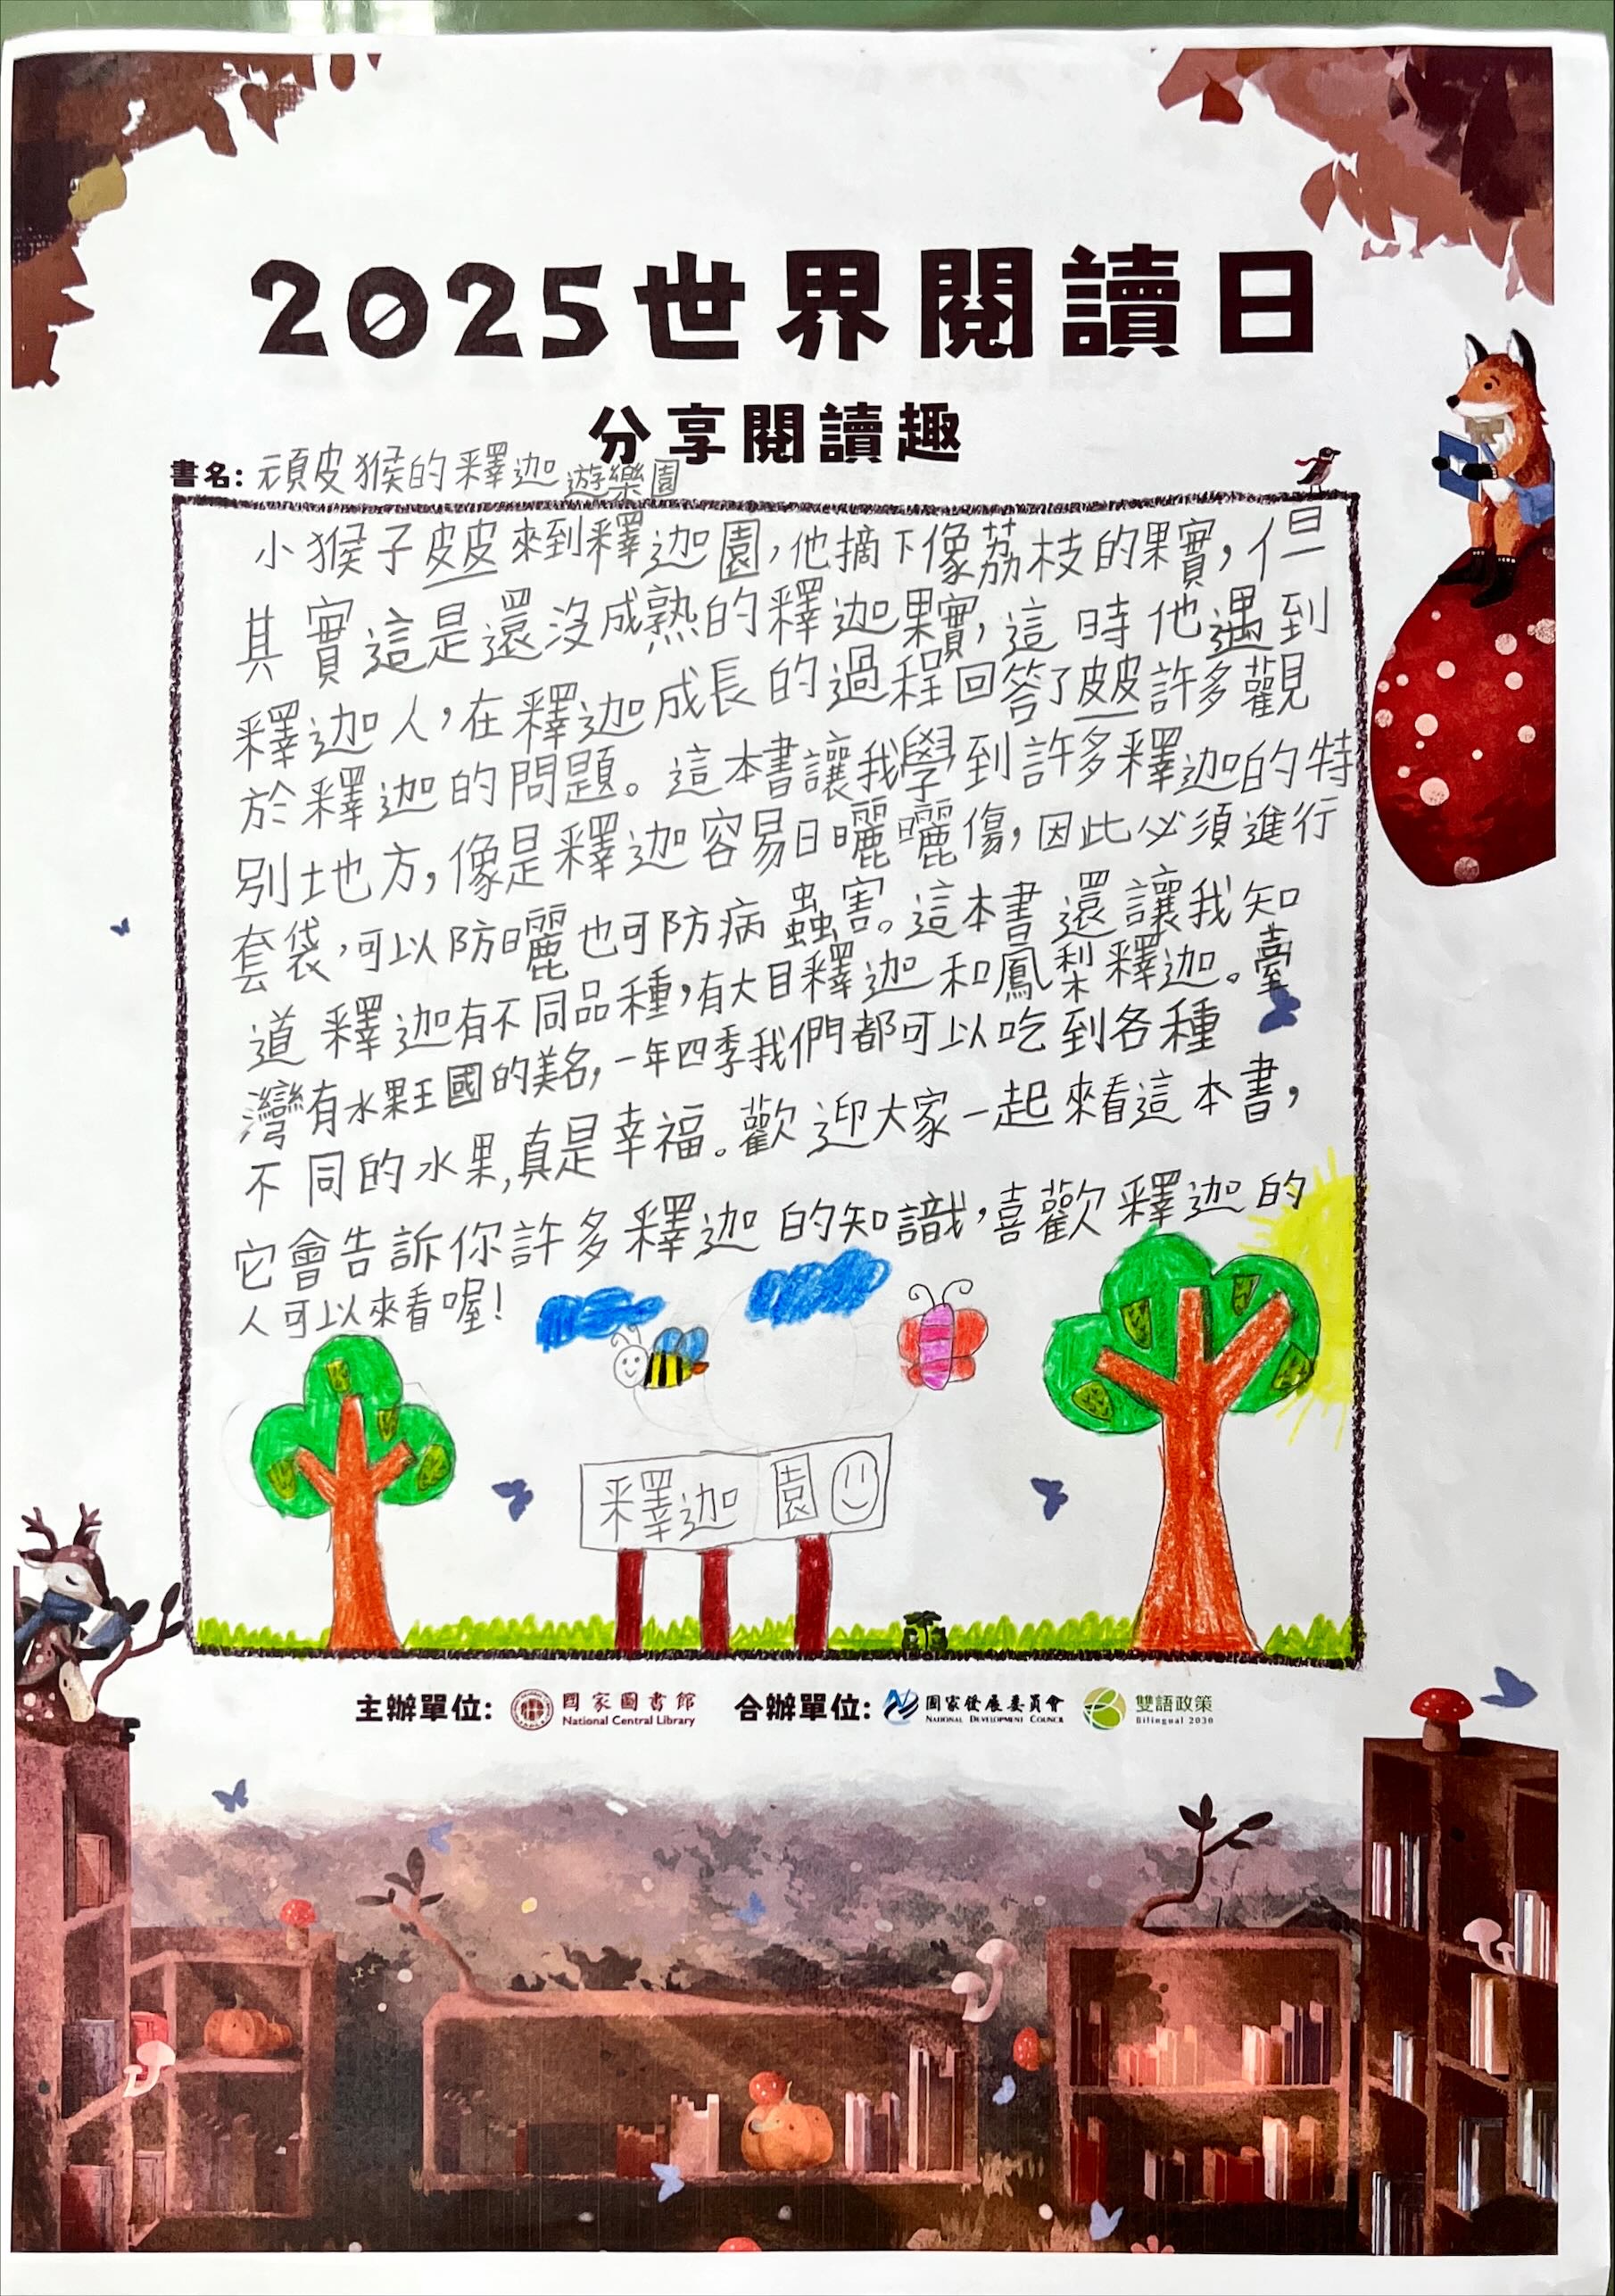 2025世界閱讀日
分享閱讀趣
書名:頑皮猴的釋迦遊樂園
小猴子皮皮來到釋迦園,他摘下像荔枝的果實,但
其實這是還沒成熟的釋迦果實,這時他遇到
釋迦人,在釋迦成長的過程回答了皮皮許多觀
於釋迦的問題。這本書讓我學到許多釋迦的特
別地方,像是釋迦容易日曬曬傷,因此必須進行
套袋,可以防曬也可防病蟲害。這本書還讓我知
道釋迦有不同品種,有大目釋迦和鳳梨釋迦。臺
灣有水果王國的美名,一年四季我們都可以吃到各種
不同的水果,真是幸福。歡迎大家一起來看這本書,
它會告訴你許多釋迦的知識,喜歡釋迦的
人可以來看喔!
釋迦園
主辦單位: 國家圖書館 合辦單位: 國家發展委員會 雙語政策
National Central Library NATIONAL DEVELOPMENT COUNCIL Bilingual 2030